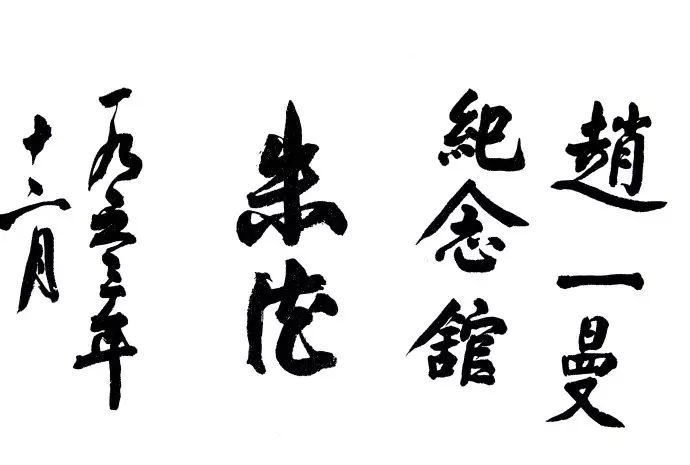 趙一曼
紀念舘
朱德
一九五三年
十二月